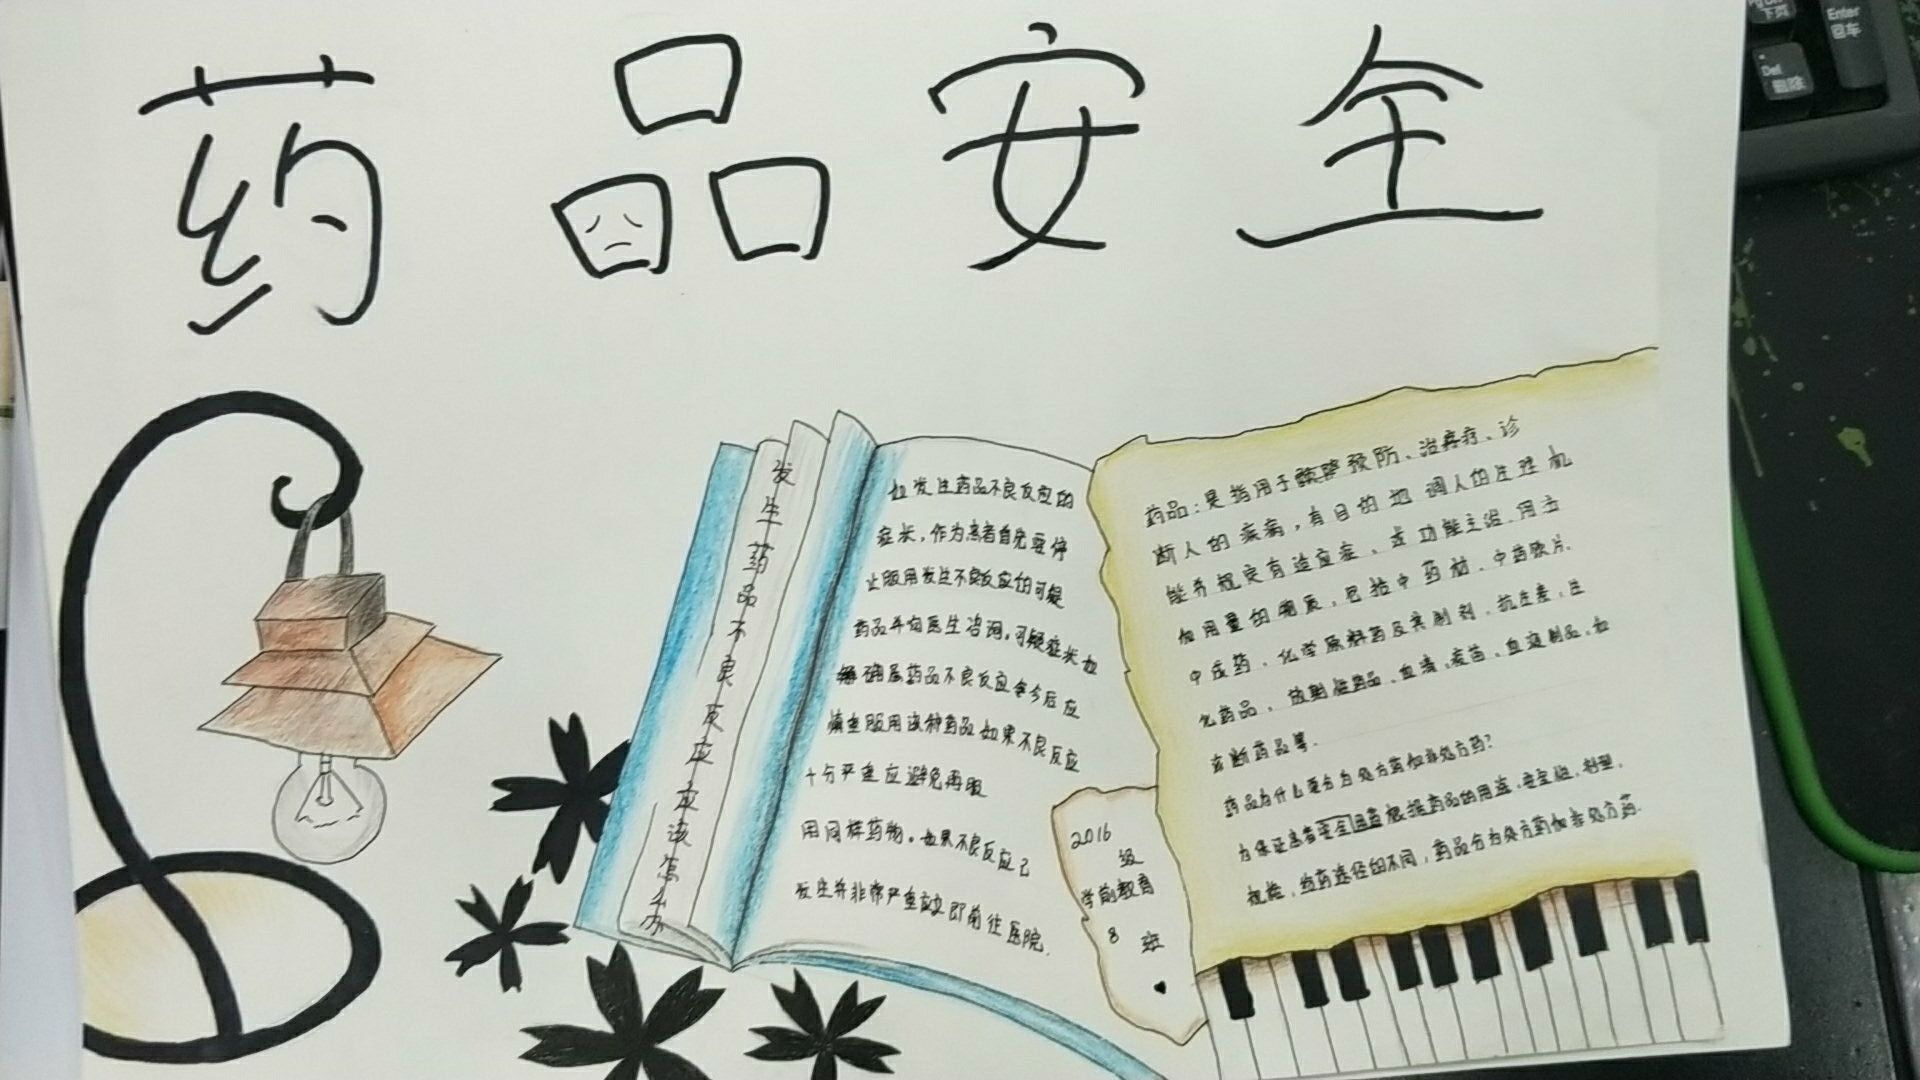 药品安全
发生药品不良反应应该怎么办
如发生药品不良反应的
症状，作为患者首先要停
止服用发生不良反应的可疑
药品并向医生咨询，可疑症状如
确属药品不良反应会今后应
慎重服用该种药品如果不良反应
十分严重应避免再服
用同样药物。如果不良反应已
发生并非常严重应立即前往医院.
药品：是指用于预防、治疗、诊
断人的疾病，有目的地调人的生理机
能并规定有适应症、或功能主治、用法
和用量的物质，包括中药材、中药饮片、
中成药、化学原料药及其制剂、抗生素、生
化药品、放射性药品、血清、疫苗、血液制品、和
诊断药品等.
药品为什么要分为处方药和非处方药?
为保证患者安全用药根据药品的用途、安全性、剂型、
规格、给药途径的不同，药品分为处方药和非处方药.
2016
级
学前教育
8 班
Enter
回车
Del
删除
下页